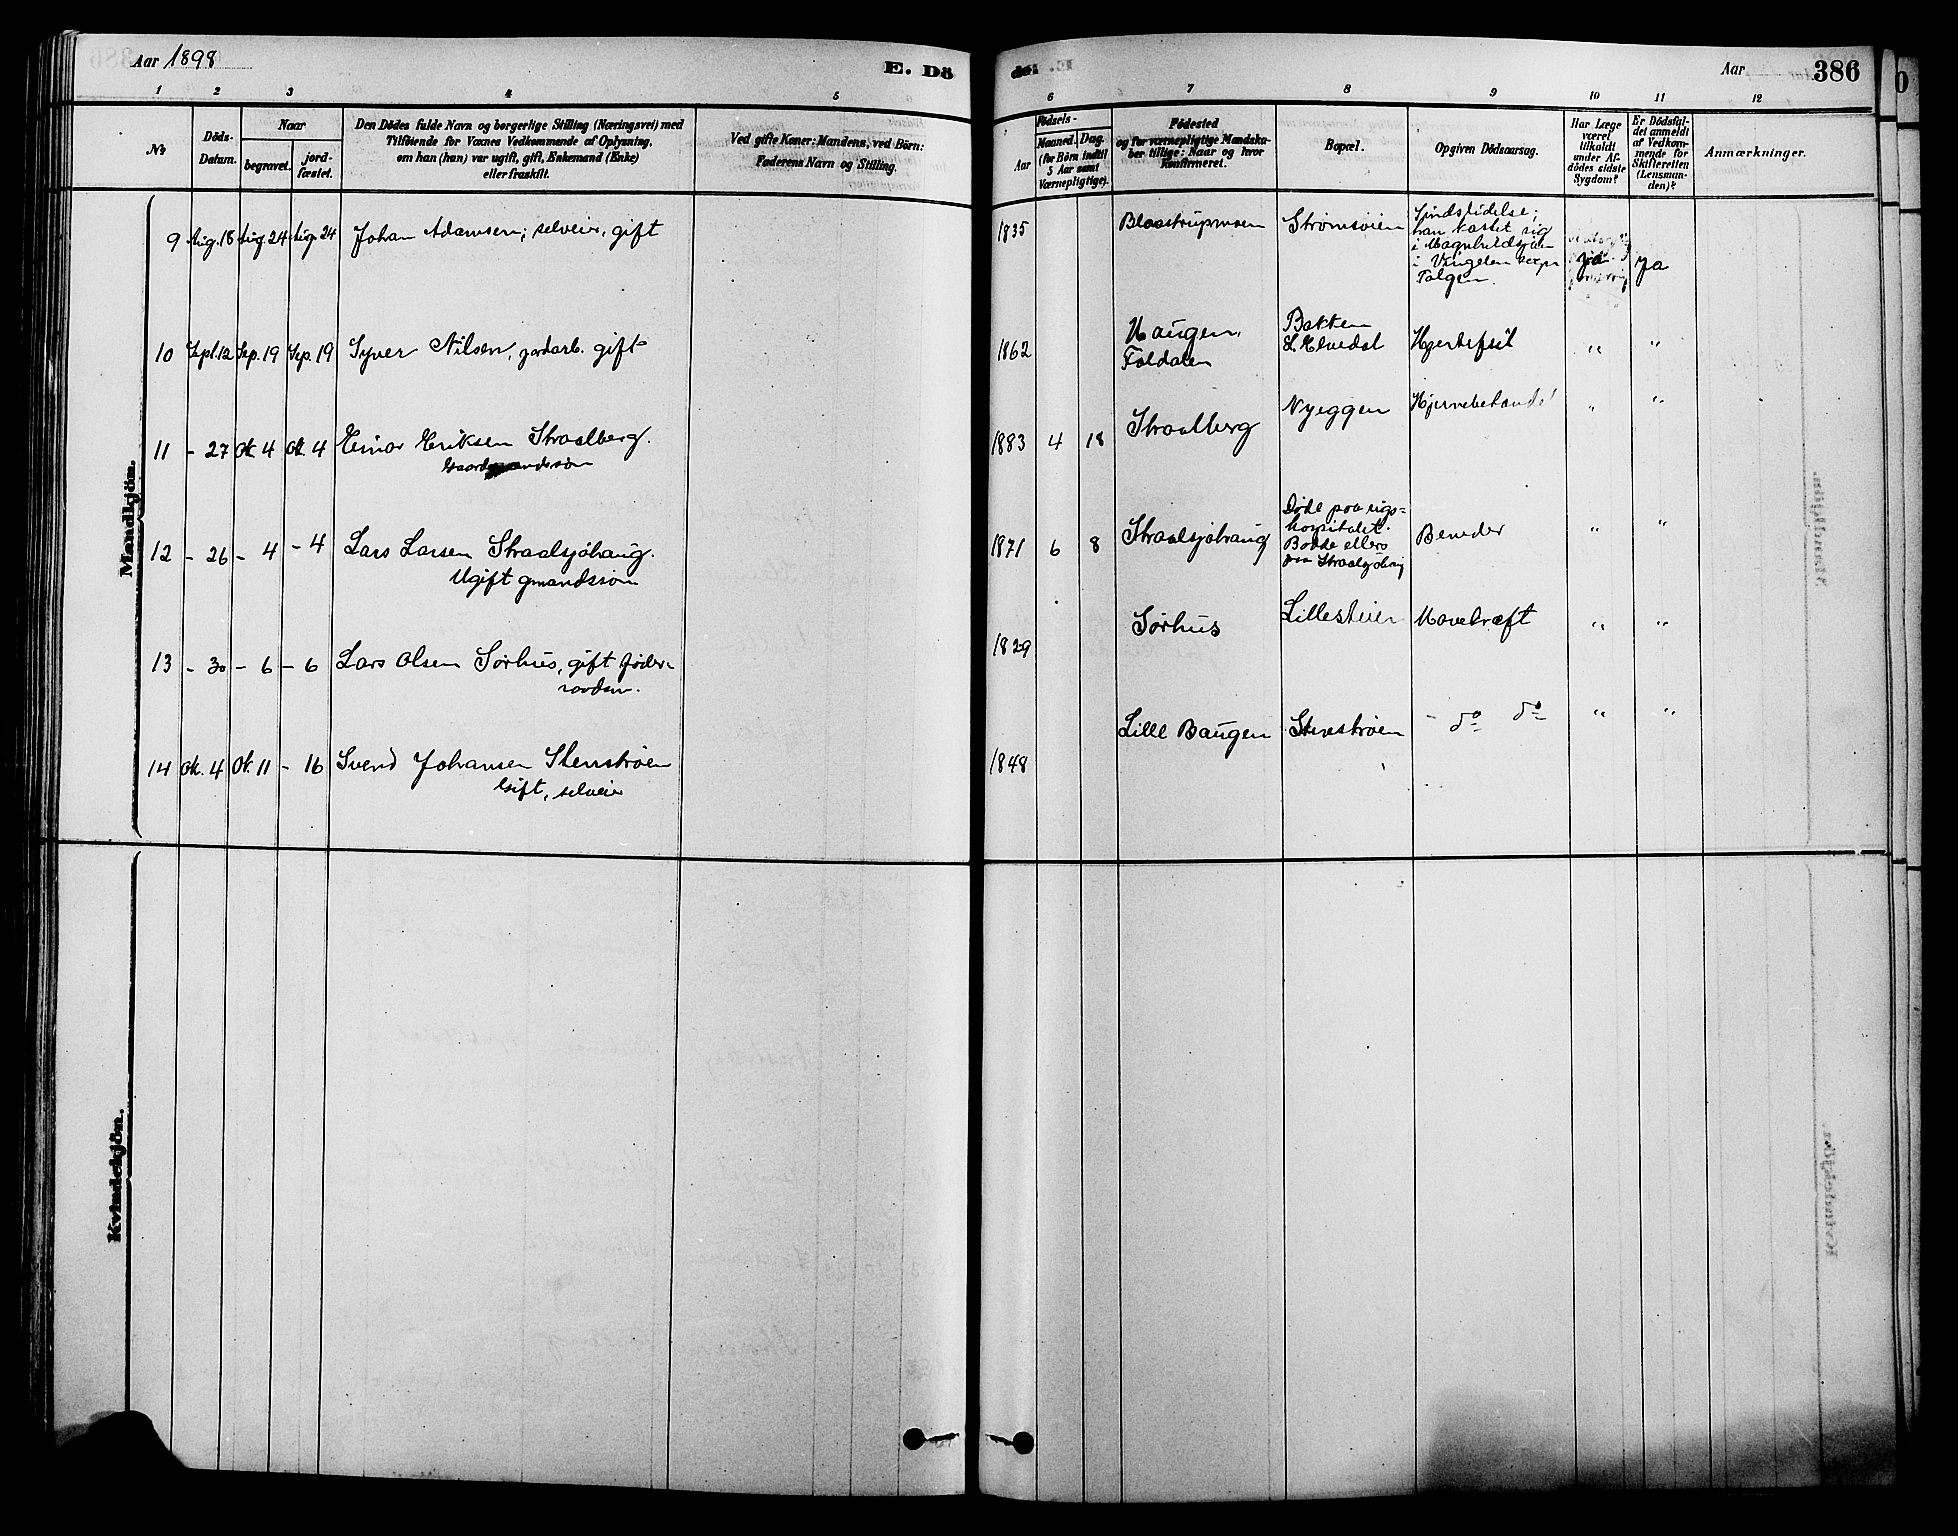 Aar 1898
E. Dö
de:
Aar
386
1 2 3 4 5 6 7 8 9 10 11 12
No
Döds-
Datum.
Naar
begravet.
jord-
fæstet.
Den Dödes fulde Navn og borgerlige Stilling (Næringsvei) med
Tilföiende for Voxnes Vedkommende af Oplysning,
om han (hun) var ugift, gift, Enkemand (Enke)
eller fraskilt.
Ved gifte Koner: Mandens, ved Börn:
Faderens Navn og Stilling.
Födsels-
Aar
Maaned. Dag.
(for Börn indtil
5 Aar samt
Værnepligtige).
Födested
og for værnepligtige Mandska-
ber tillige: Naar og hvor
Konfirmeret.
Bopæl.
Opgiven Dödsaarsag.
Har Læge
været
tilkaldt
under Af-
dödes sidste
Sygdom?
Er Dödsfal-
det anmeldt
af Vedkom-
mende for
Skifteretten
(Lensman-
den)?
Anmærkninger.
Mandkjön.
9 Aug. 18 Aug. 24 Aug. 24 Johan Adamsen; selveier, gift
1835 Blaastrupmoen Strømsøien
Sindslidelse;
han kastet sig
i Magnhildsjøen
i Vingelen
Tolgen.
ja ja
10 Sept. 12 Sep. 19 Sep. 19 Syver Nilsen, jordarb. gift
1862 Haugen, Foldalen
Bakken
L. Elvedal
Hjertefeil " "
11 - 27 Ok. 4 Ok. 4 Einar Eriksen Straalberg.
Gaardmandssøn
1883 4 18 Straalberg Nyeggen " "
12 - 26 - 4 - 4 Lars Larsen Straalsjøhaug.
Ugift gmandssøn
1871 6 8 Straalsjøhaug
Døde paa rigs-
hospitalet.
Bodde ellers
paa
Beneder " "
13 - 30 - 6 - 6 Lars Olsen Sørhus, gift føder-
raadsm.
1829 Sørhus Lillesteier Mavekræft " "
14 Ok. 4 Ok. 11 - 16 Svend Johansen Stenstrøen
Gift, selveier
1848 Lille Baugen Stenstrøen - do do " "
Kvindekjön.